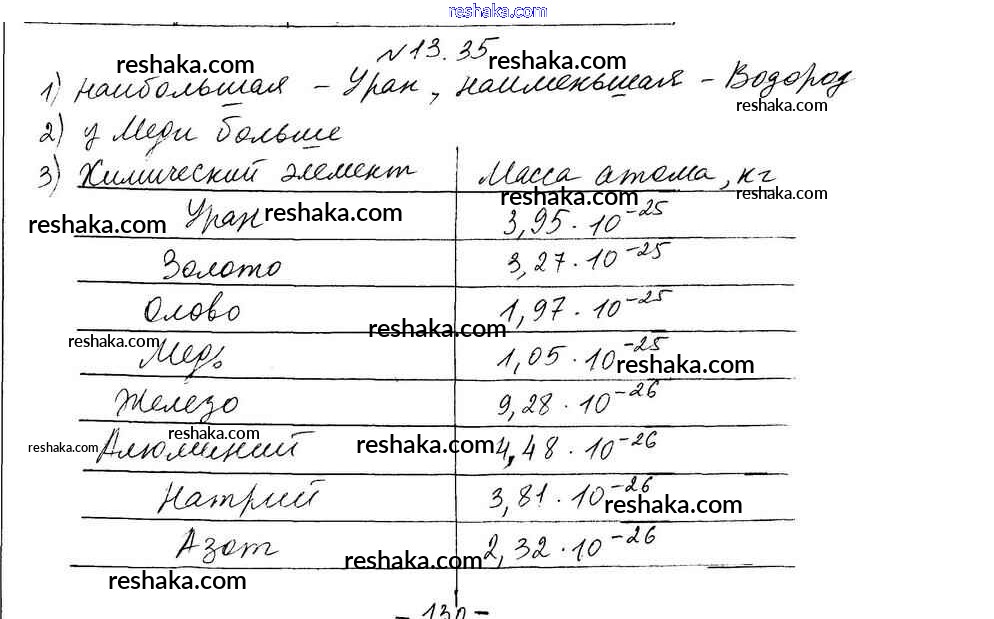 reshaka.com
№13.35
reshaka.com reshaka.com
1) наибольшая – Уран, наименьшая – Водород
reshaka.com
2) у Меди больше
3) Химический элемент Масса атома, кг
reshaka.com reshaka.com
reshaka.com reshaka.com
Уран 3,95 · 10⁻²⁵
Золото 3,27 · 10⁻²⁵
Олово 1,97 · 10⁻²⁵
reshaka.com reshaka.com
Медь 1,05 · 10⁻²⁵
reshaka.com
Железо 9,28 · 10⁻²⁶
reshaka.com reshaka.com reshaka.com
Алюминий 4,48 · 10⁻²⁶
Натрий 3,81 · 10⁻²⁶
reshaka.com
Азот 2,32 · 10⁻²⁶
reshaka.com reshaka.com
– 130 –